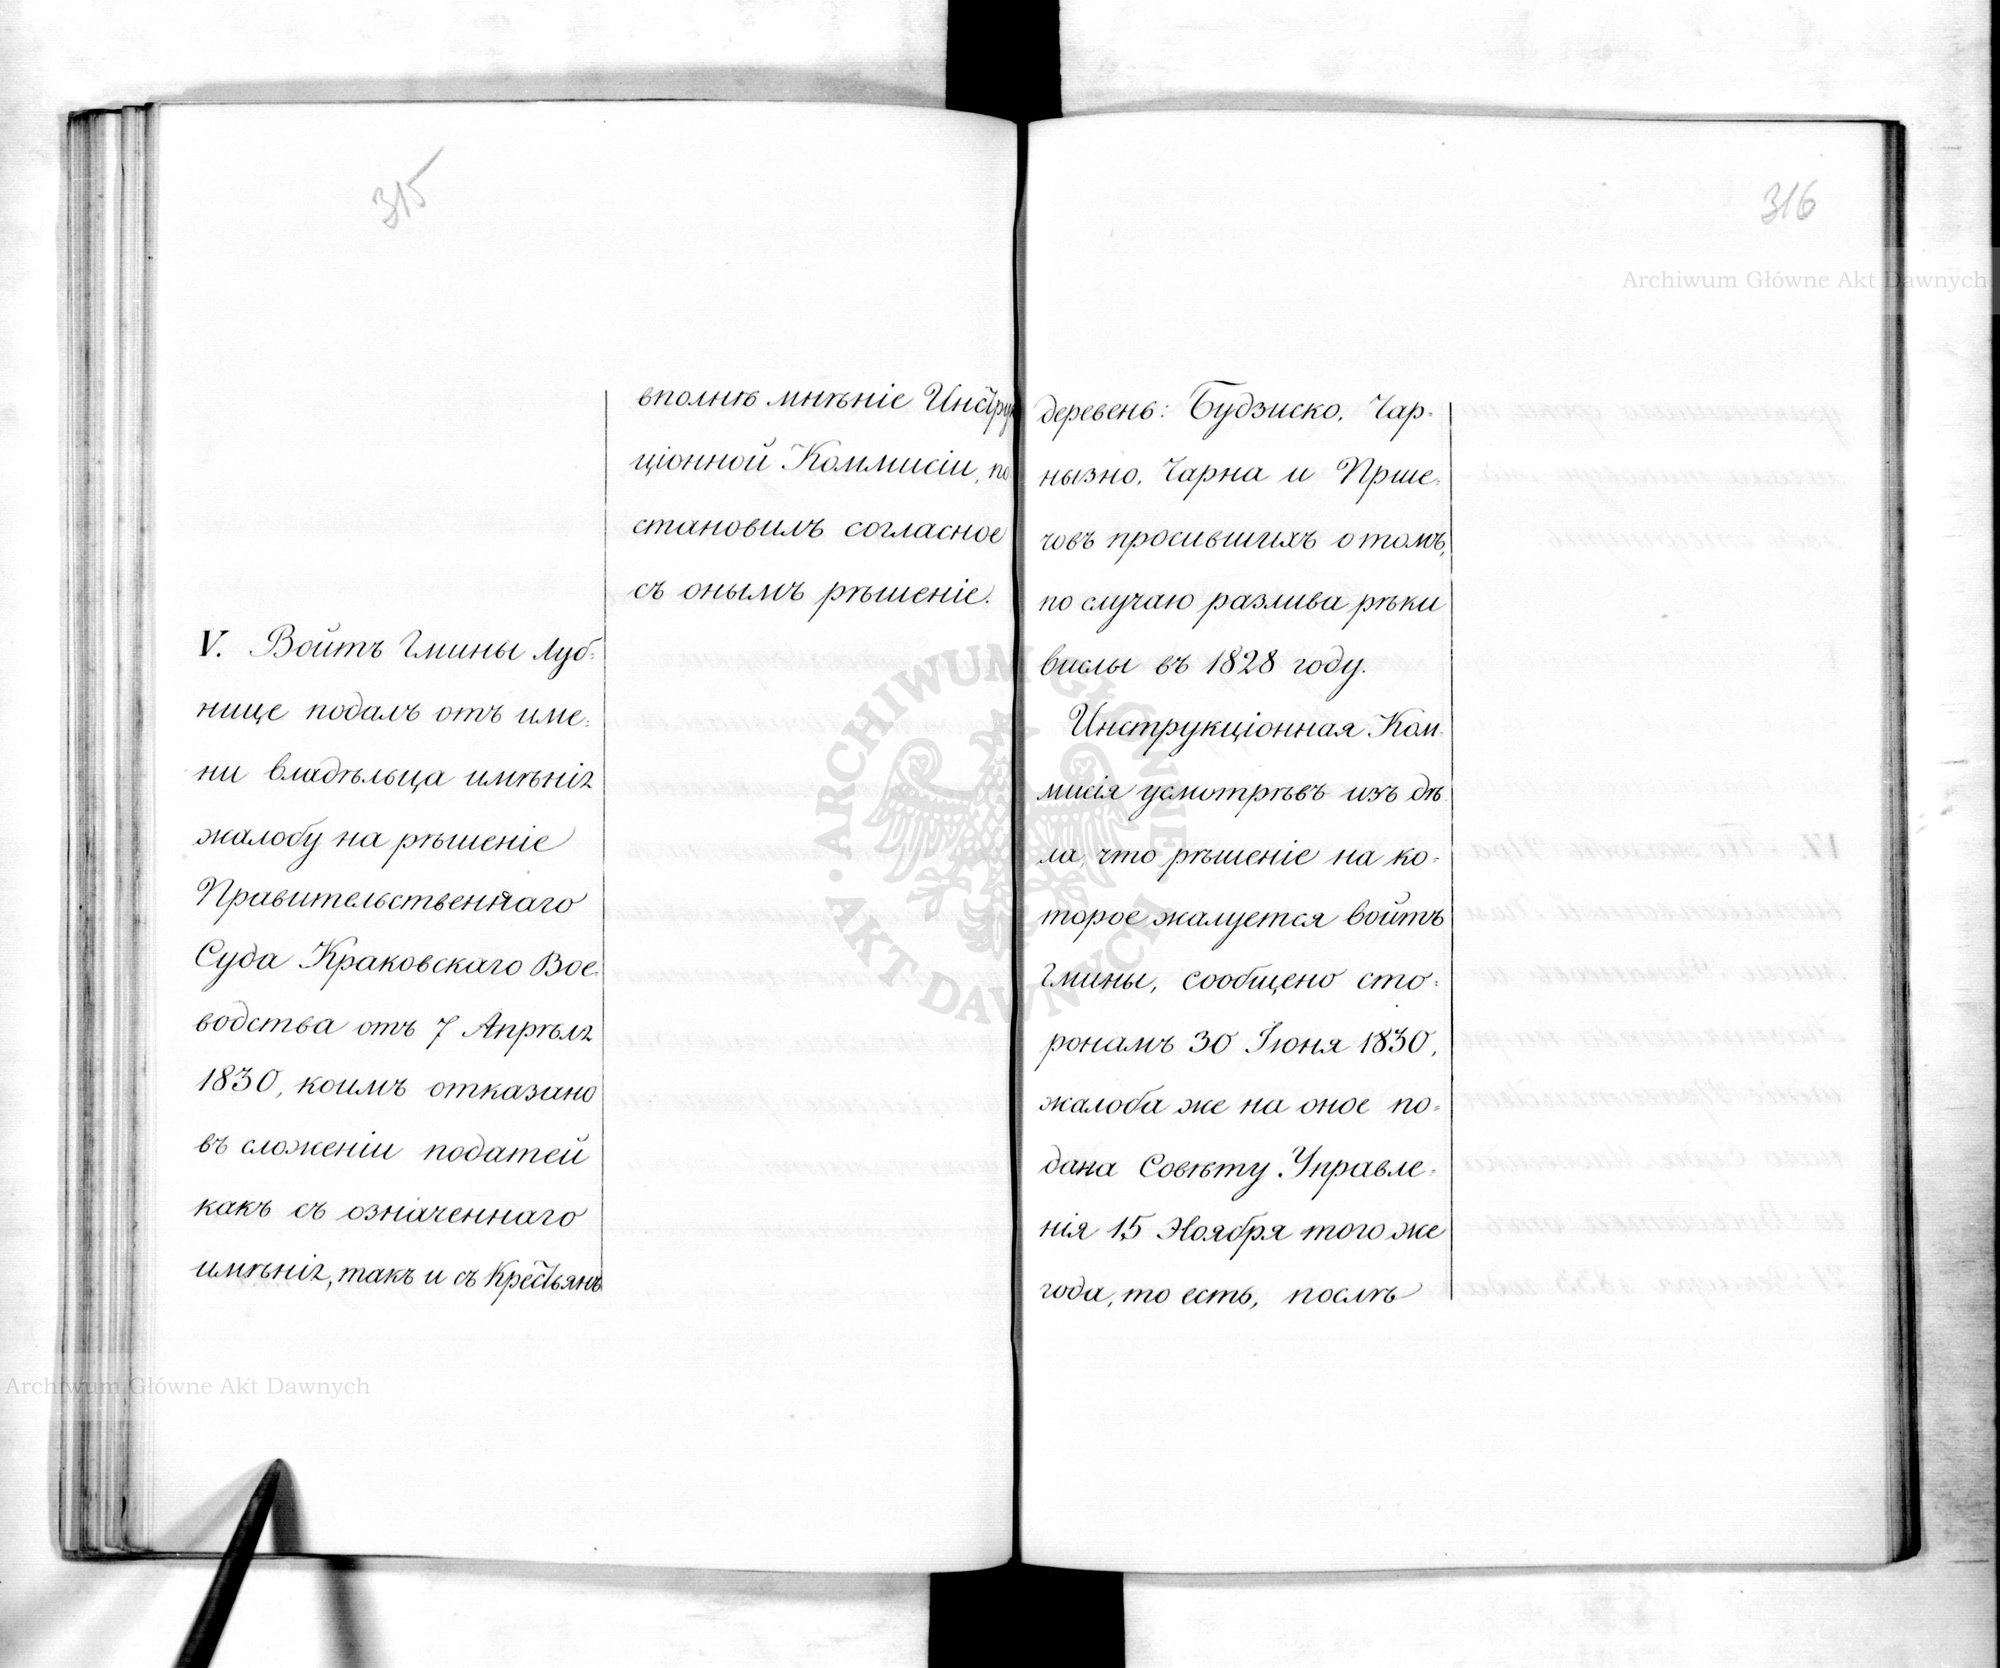 315
вполнѣ мнѣніе Инструк
ціонной Коммисіи, по
становилъ согласное
съ онымъ рѣшеніе.
V. Войтъ Гмины Луб-
нице подалъ отъ име-
ни владѣльца имѣнія
жалобу на рѣшеніе
Правительственнаго
Суда Краковскаго Вое-
водства отъ 7 Апрѣля
1830, коимъ отказано
въ сложеніи податей
какъ съ означеннаго
имѣнія, такъ и съ Крестьянъ
316
деревень: Будзиско, Чар-
нызно, Чарна и Прше-
човъ просившихъ о томъ,
по случаю разлива рѣки
вислы въ 1828 году.
Инструкціонная Ком-
мисія усмотрѣвъ изъ дѣ-
ла, что рѣшеніе на ко-
торое жалуется войтъ
Гмины, сообщено сто-
ронамъ 30 Іюня 1830,
жалоба же на оное по-
дана Совѣту Управле-
нія 15 Ноября того же
года, то есть, послѣ
Archiwum Główne Akt Dawnych
Archiwum Główne Akt Dawnych
ARCHIWUM GŁÓWNE
AKT DAWNYCH